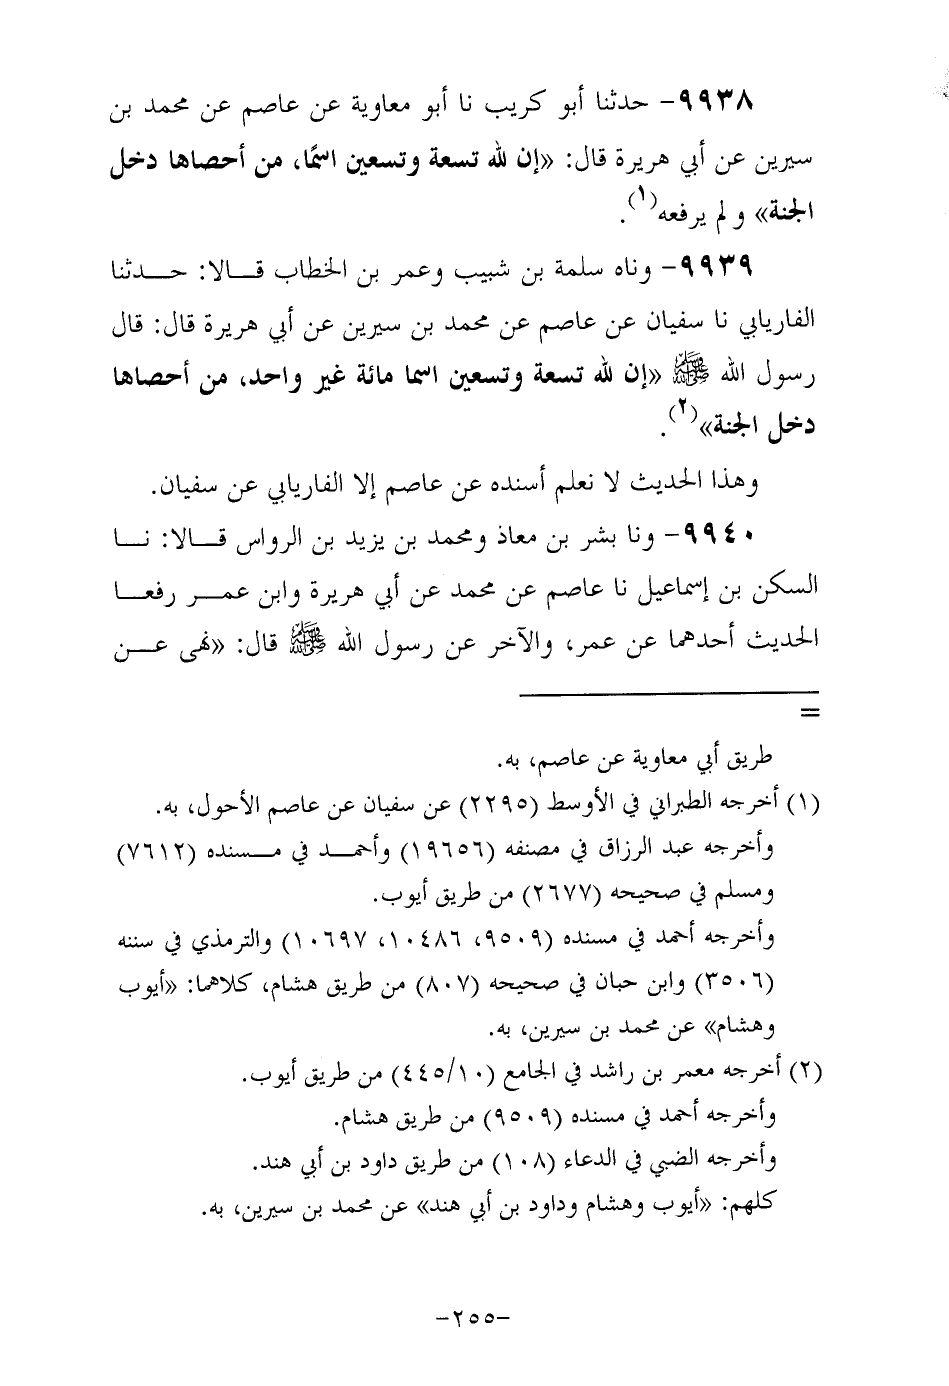 ٩٩٣٨- حدثنا أبو كريب نا أبو معاوية عن عاصم عن محمد بن
سيرين عن أبي هريرة قال: «إن لله تسعة وتسعين اسمًا، من أحصاها دخل
الجنة» و لم يرفعه(١).
٩٩٣٩- وناه سلمة بن شبيب وعمر بن الخطاب قالا: حدثنا
الفاريابي نا سفيان عن عاصم عن محمد بن سيرين عن أبي هريرة قال: قال
رسول الله ﷺ «إن لله تسعة وتسعين اسما مائة غير واحد، من أحصاها
دخل الجنة»(٢).
وهذا الحديث لا نعلم أسنده عن عاصم إلا الفاريابي عن سفيان.
٩٩٤٠- ونا بشر بن معاذ ومحمد بن يزيد بن الرواس قالا: نا
السكن بن إسماعيل نا عاصم عن محمد عن أبي هريرة وابن عمر رفعا
الحديث أحدهما عن عمر، والآخر عن رسول الله ﷺ قال: «نهى عن
=
طريق أبي معاوية عن عاصم، به.
(١) أخرجه الطبراني في الأوسط (٢٢٩٥) عن سفيان عن عاصم الأحول، به.
وأخرجه عبد الرزاق في مصنفه (١٩٦٥٦) وأحمد في مسنده (٧٦١٢)
ومسلم في صحيحه (٢٦٧٧) من طريق أيوب.
وأخرجه أحمد في مسنده (٩٥٠٩، ١٠٤٨٦، ١٠٦٩٧) والترمذي في سننه
(٣٥٠٦) وابن حبان في صحيحه (٨٠٧) من طريق هشام، كلاهما: «أيوب
وهشام» عن محمد بن سيرين، به.
(٢) أخرجه معمر بن راشد في الجامع (٤٤٥/١٠) من طريق أيوب.
وأخرجه أحمد في مسنده (٩٥٠٩) من طريق هشام.
وأخرجه الضبي في الدعاء (١٠٨) من طريق داود بن أبي هند.
كلهم: «أيوب وهشام وداود بن أبي هند» عن محمد بن سيرين، به.
-٢٥٥-